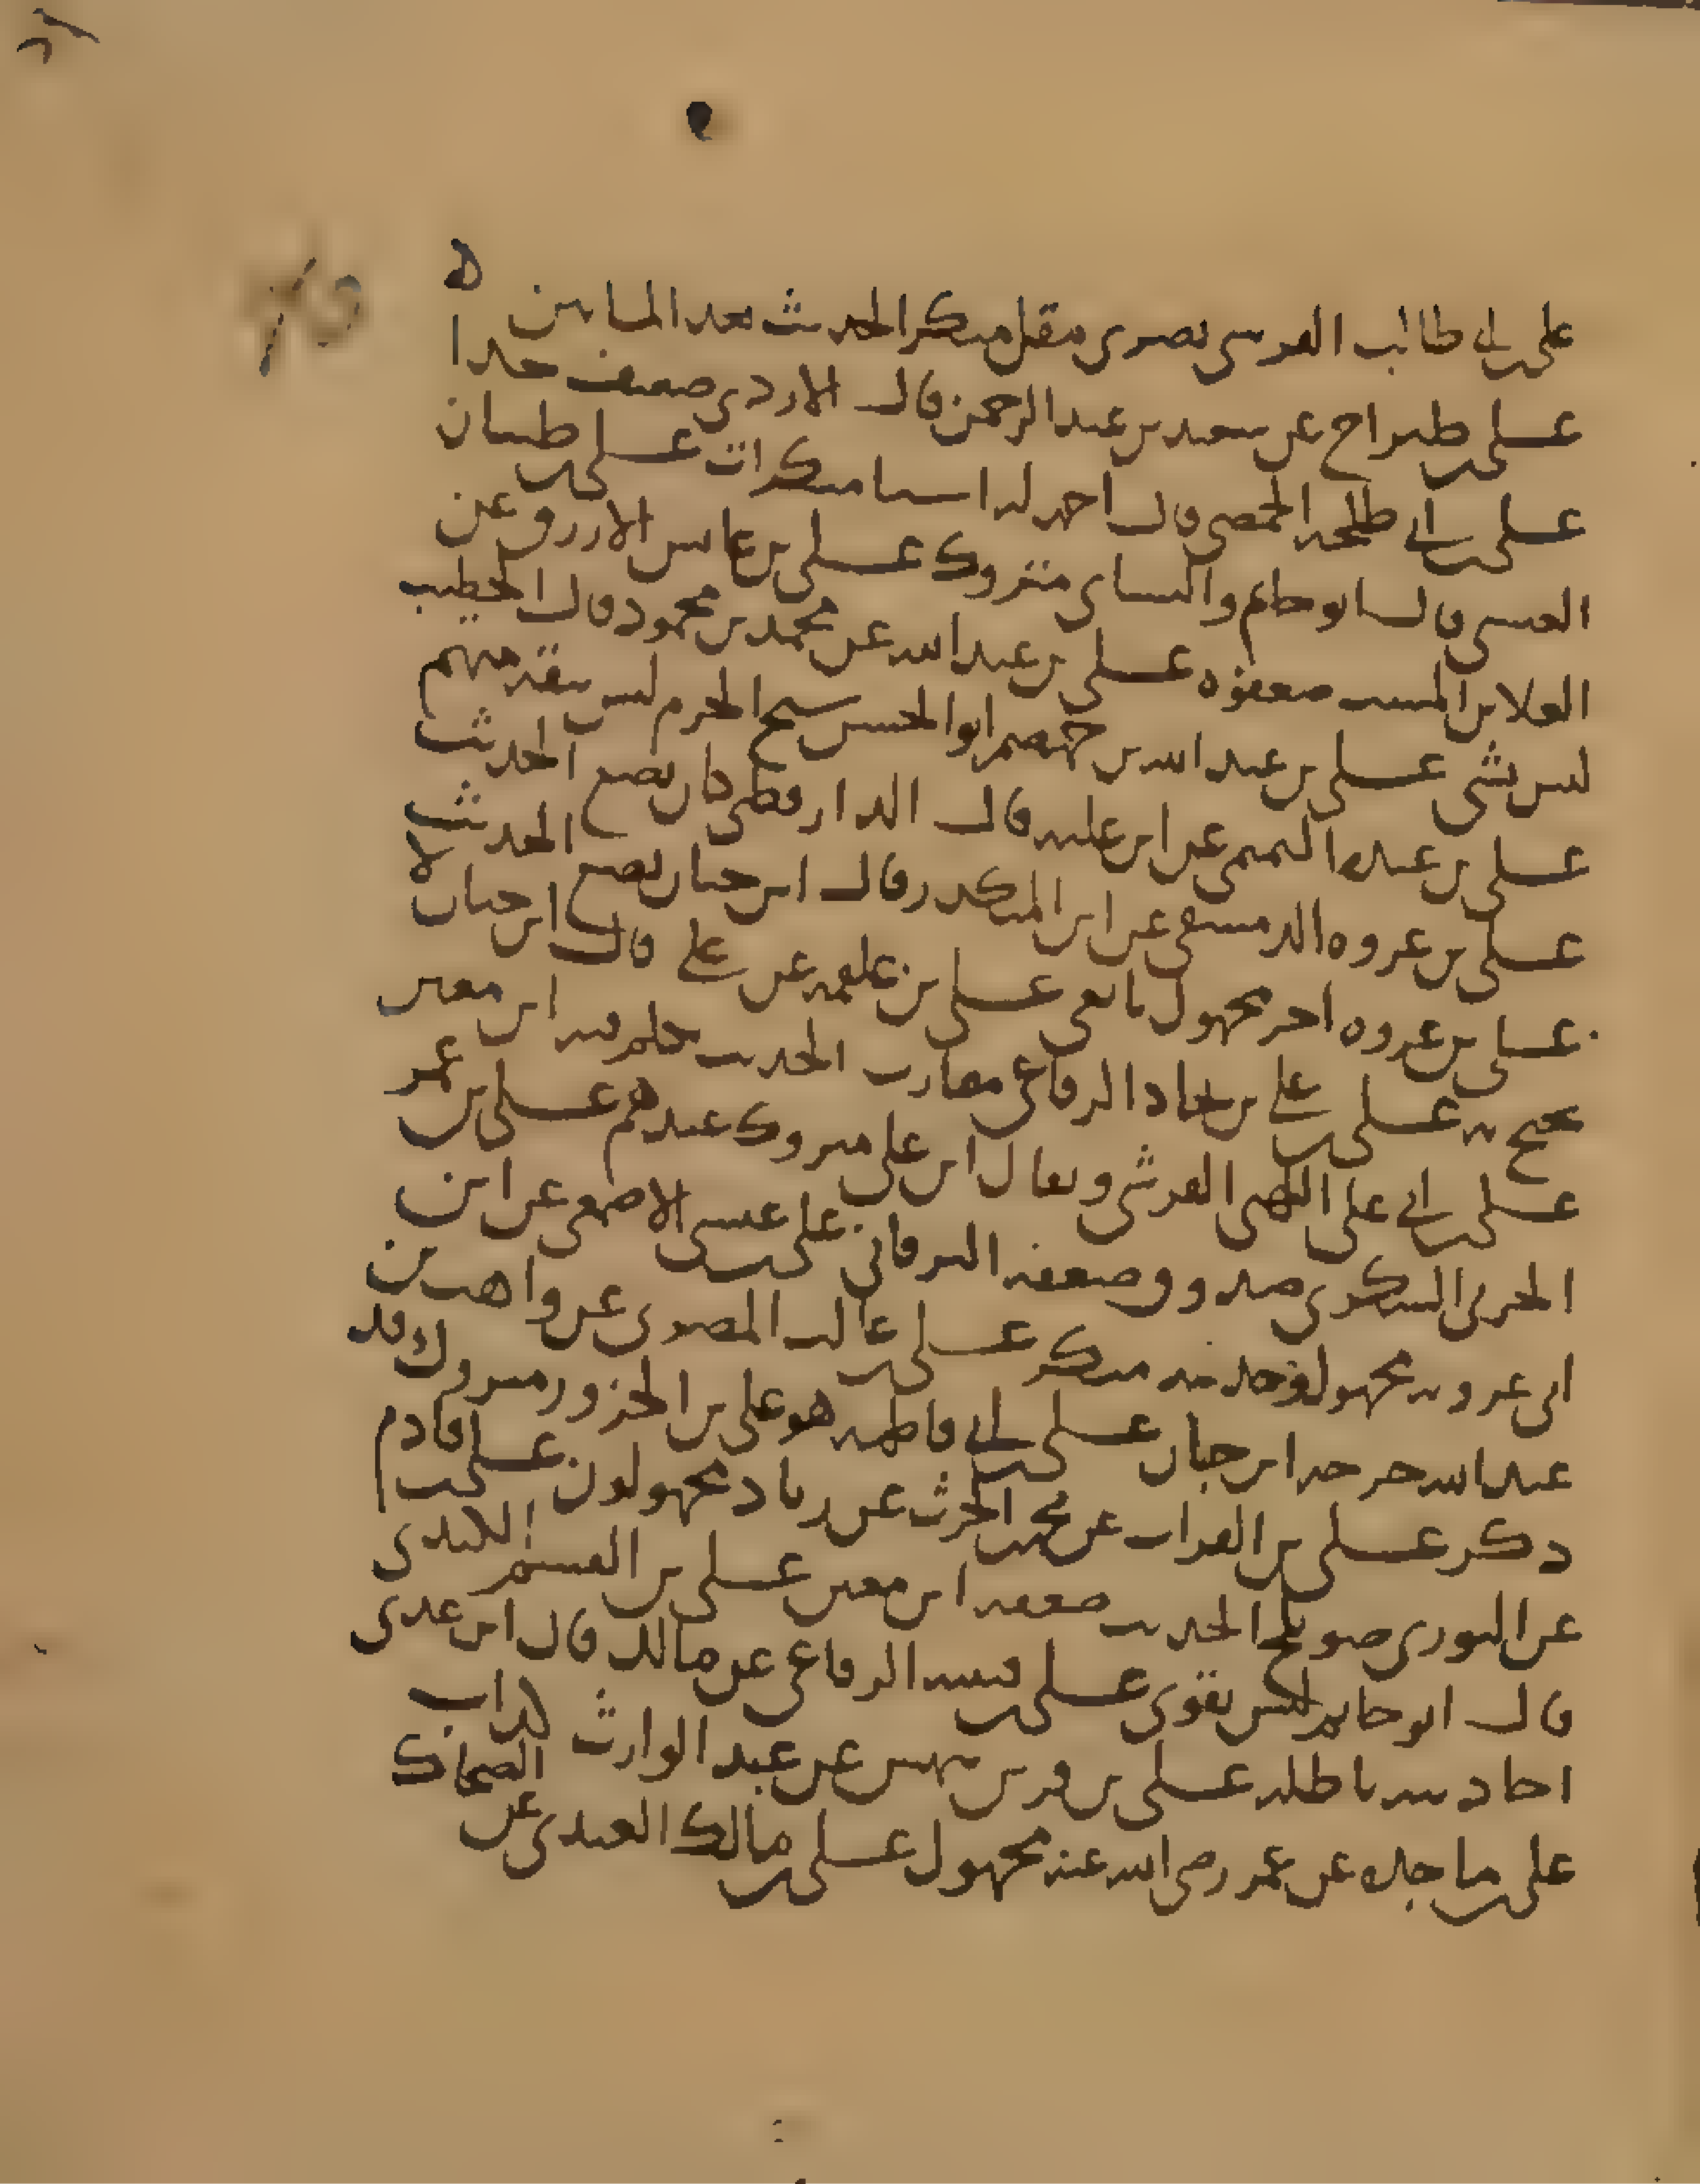 علي بن أبي طالب القرشي بصري مقل منكر الحديث بعد المايتين ه
علي بن طبراخ عن سعيد بن عبد الرحمن قال الازدي ضعيف جدا
علي بن أبي طلحة الحمصي قال احمد له اشيا منكرات علي بن ظبيان
العبسي قال ابو حاتم والنساي متروك علي بن عابس الازرق عن
العلا بن المسيب ضعفوه علي بن عبد الله عن محمد بن محمود قال الخطيب
ليس بشي علي بن عبد الله بن جهضم ابو الحسن شيخ الحرم ليس بثقة متهم
علي بن عبده التميمي عن ابن علية قال الدارقطني كان يضع الحديث
علي بن عروه الدمشقي عن ابن المنكدر قال ابن حبان يضع الحديث
علي بن عروه اخر مجهول تابعي علي بن علقمة عن علي قال ابن حبان لا
يحتج به علي بن علي بن نجاد الرفاعي مقارب الحديث تكلم فيه ابن معين
علي بن أبي علي اللهبي القرشي ويقال ابن علي متروك عندهم علي بن عمر
الحربي السكري صدوق وضعفه البرقاني علي بن عيسى الاصمعي عن ابن
ابي عروبة مجهول وحديثه منكر علي بن غالب المصري عن واهب بن
عبد الله جرحه ابن حبان علي بن أبي فاطمة هو علي بن الحزور متروك قد
ذكر علي بن الفرات عن محمد بن الحرث عن زياد مجهولون علي بن قادم
عن الثوري صويلح الحديث ضعفه ابن معين علي بن القسم الكندي
قال ابو حاتم ليس بقوي علي بن قتيبة الرفاعي عن مالك قال ابن عدي
احاديثه باطلة علي بن قرين بن بيهس عن عبد الوارث كذاب
علي بن ماجده عن عمر رضي الله عنه مجهول علي بن مالك العبدي عن الضحاك